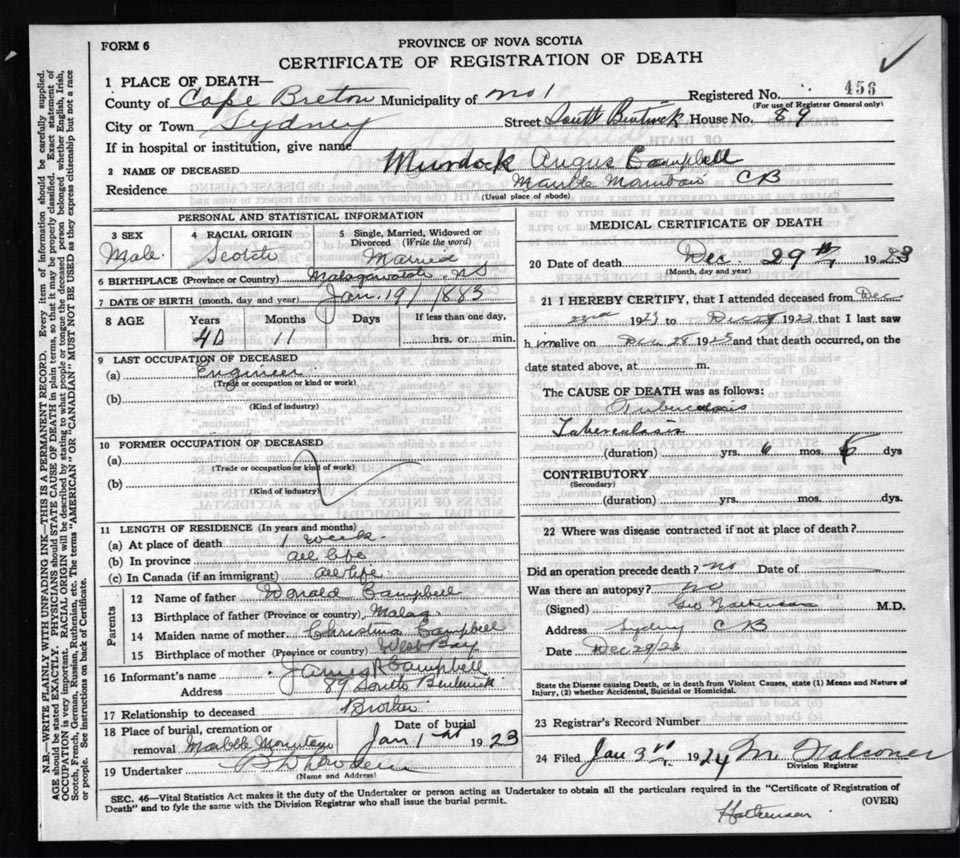 FORM 6
PROVINCE OF NOVA SCOTIA
CERTIFICATE OF REGISTRATION OF DEATH
1 PLACE OF DEATH—
Registered No. 456
(For use of Registrar General only)
County of Cape Breton Municipality of No 1
City or Town Sydney Street South Bentinck House No. 89
If in hospital or institution, give name
2 NAME OF DECEASED Murdock Angus Campbell
Residence Marble Mountain CB
(Usual place of abode)
PERSONAL AND STATISTICAL INFORMATION
3 SEX 4 RACIAL ORIGIN 5 Single, Married, Widowed or Divorced (Write the word)
Male Scotch Married
6 BIRTHPLACE (Province or Country) Malagawatch NS
7 DATE OF BIRTH (month, day and year) Jan. 19 / 1883
8 AGE Years Months Days If less than one day,
40 11 hrs. or min.
9 LAST OCCUPATION OF DECEASED
(a) Engineer
(Trade or occupation or kind or work)
(b)
(Kind of industry)
10 FORMER OCCUPATION OF DECEASED
(a)
(Trade or occupation or kind of work)
(b)
(Kind of industry)
11 LENGTH OF RESIDENCE (In years and months)
(a) At place of death 1 week.
(b) In province all life
(c) In Canada (if an immigrant) all life
Parents
12 Name of father Donald Campbell
13 Birthplace of father (Province or country) Malag.
14 Maiden name of mother Christina Campbell
15 Birthplace of mother (Province or country) West Bay
16 Informant's name James Campbell
Address 89 South Bentinck
17 Relationship to deceased Brother
18 Place of burial, cremation or removal Marble Mountain
Date of burial
Jan 1st 1923
19 Undertaker
(Name and Address)
MEDICAL CERTIFICATE OF DEATH
20 Date of death Dec. 29th 1923
(Month, day and year)
21 I HEREBY CERTIFY, that I attended deceased from Dec
22nd 1923 to Dec 1923 that I last saw
h im alive on Dec 28 1923 and that death occurred, on the
date stated above, at m.
The CAUSE OF DEATH was as follows:
Tuberculosis
(duration) yrs. 6 mos. dys
CONTRIBUTORY
(Secondary)
(duration) yrs. mos. dys.
22 Where was disease contracted if not at place of death?
Did an operation precede death? no Date of
Was there an autopsy? no
(Signed) M.D.
Address Sydney CB
Date Dec 29/23
State the Disease causing Death, or in death from Violent Causes, state (1) Means and Nature of
Injury, (2) whether Accidental, Suicidal or Homicidal.
23 Registrar's Record Number
24 Filed Jan 3rd 1924 M. Falconer
Division Registrar
SEC. 46—Vital Statistics Act makes it the duty of the Undertaker or person acting as Undertaker to obtain all the particulars required in the "Certificate of Registration of
Death" and to fyle the same with the Division Registrar who shall issue the burial permit.
(OVER)
N.B.—WRITE PLAINLY WITH UNFADING INK—THIS IS A PERMANENT RECORD. Every item of information should be carefully supplied.
AGE should be stated EXACTLY. PHYSICIANS should STATE CAUSE OF DEATH in plain terms, so that it may be properly classified. Exact statement of
OCCUPATION is very important. RACIAL ORIGIN will be described by stating to what people or tongue the deceased person belonged whether English, Irish,
Scotch, French, German, Russian, Ruthenian, etc. The terms "AMERICAN" OR "CANADIAN" MUST NOT BE USED as they express citizenship but not a race
or people. See instructions on back of Certificate.